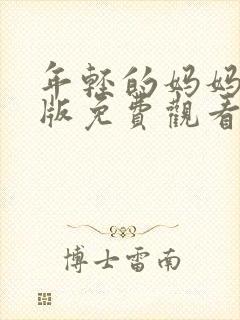 年轻的妈妈
版免費觀看
博士雷南